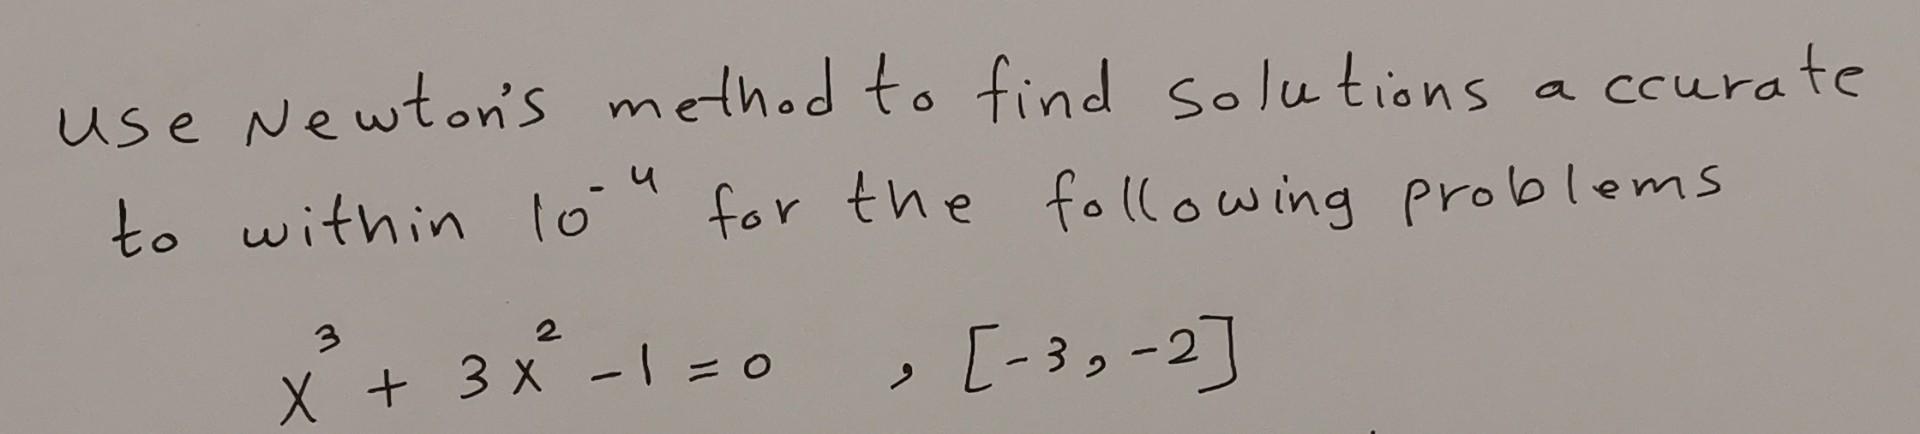 use Newton's method to find solutions accurate
to within 10⁻⁴ for the following problems
x³ + 3x² - 1 = 0 , [-3, -2]